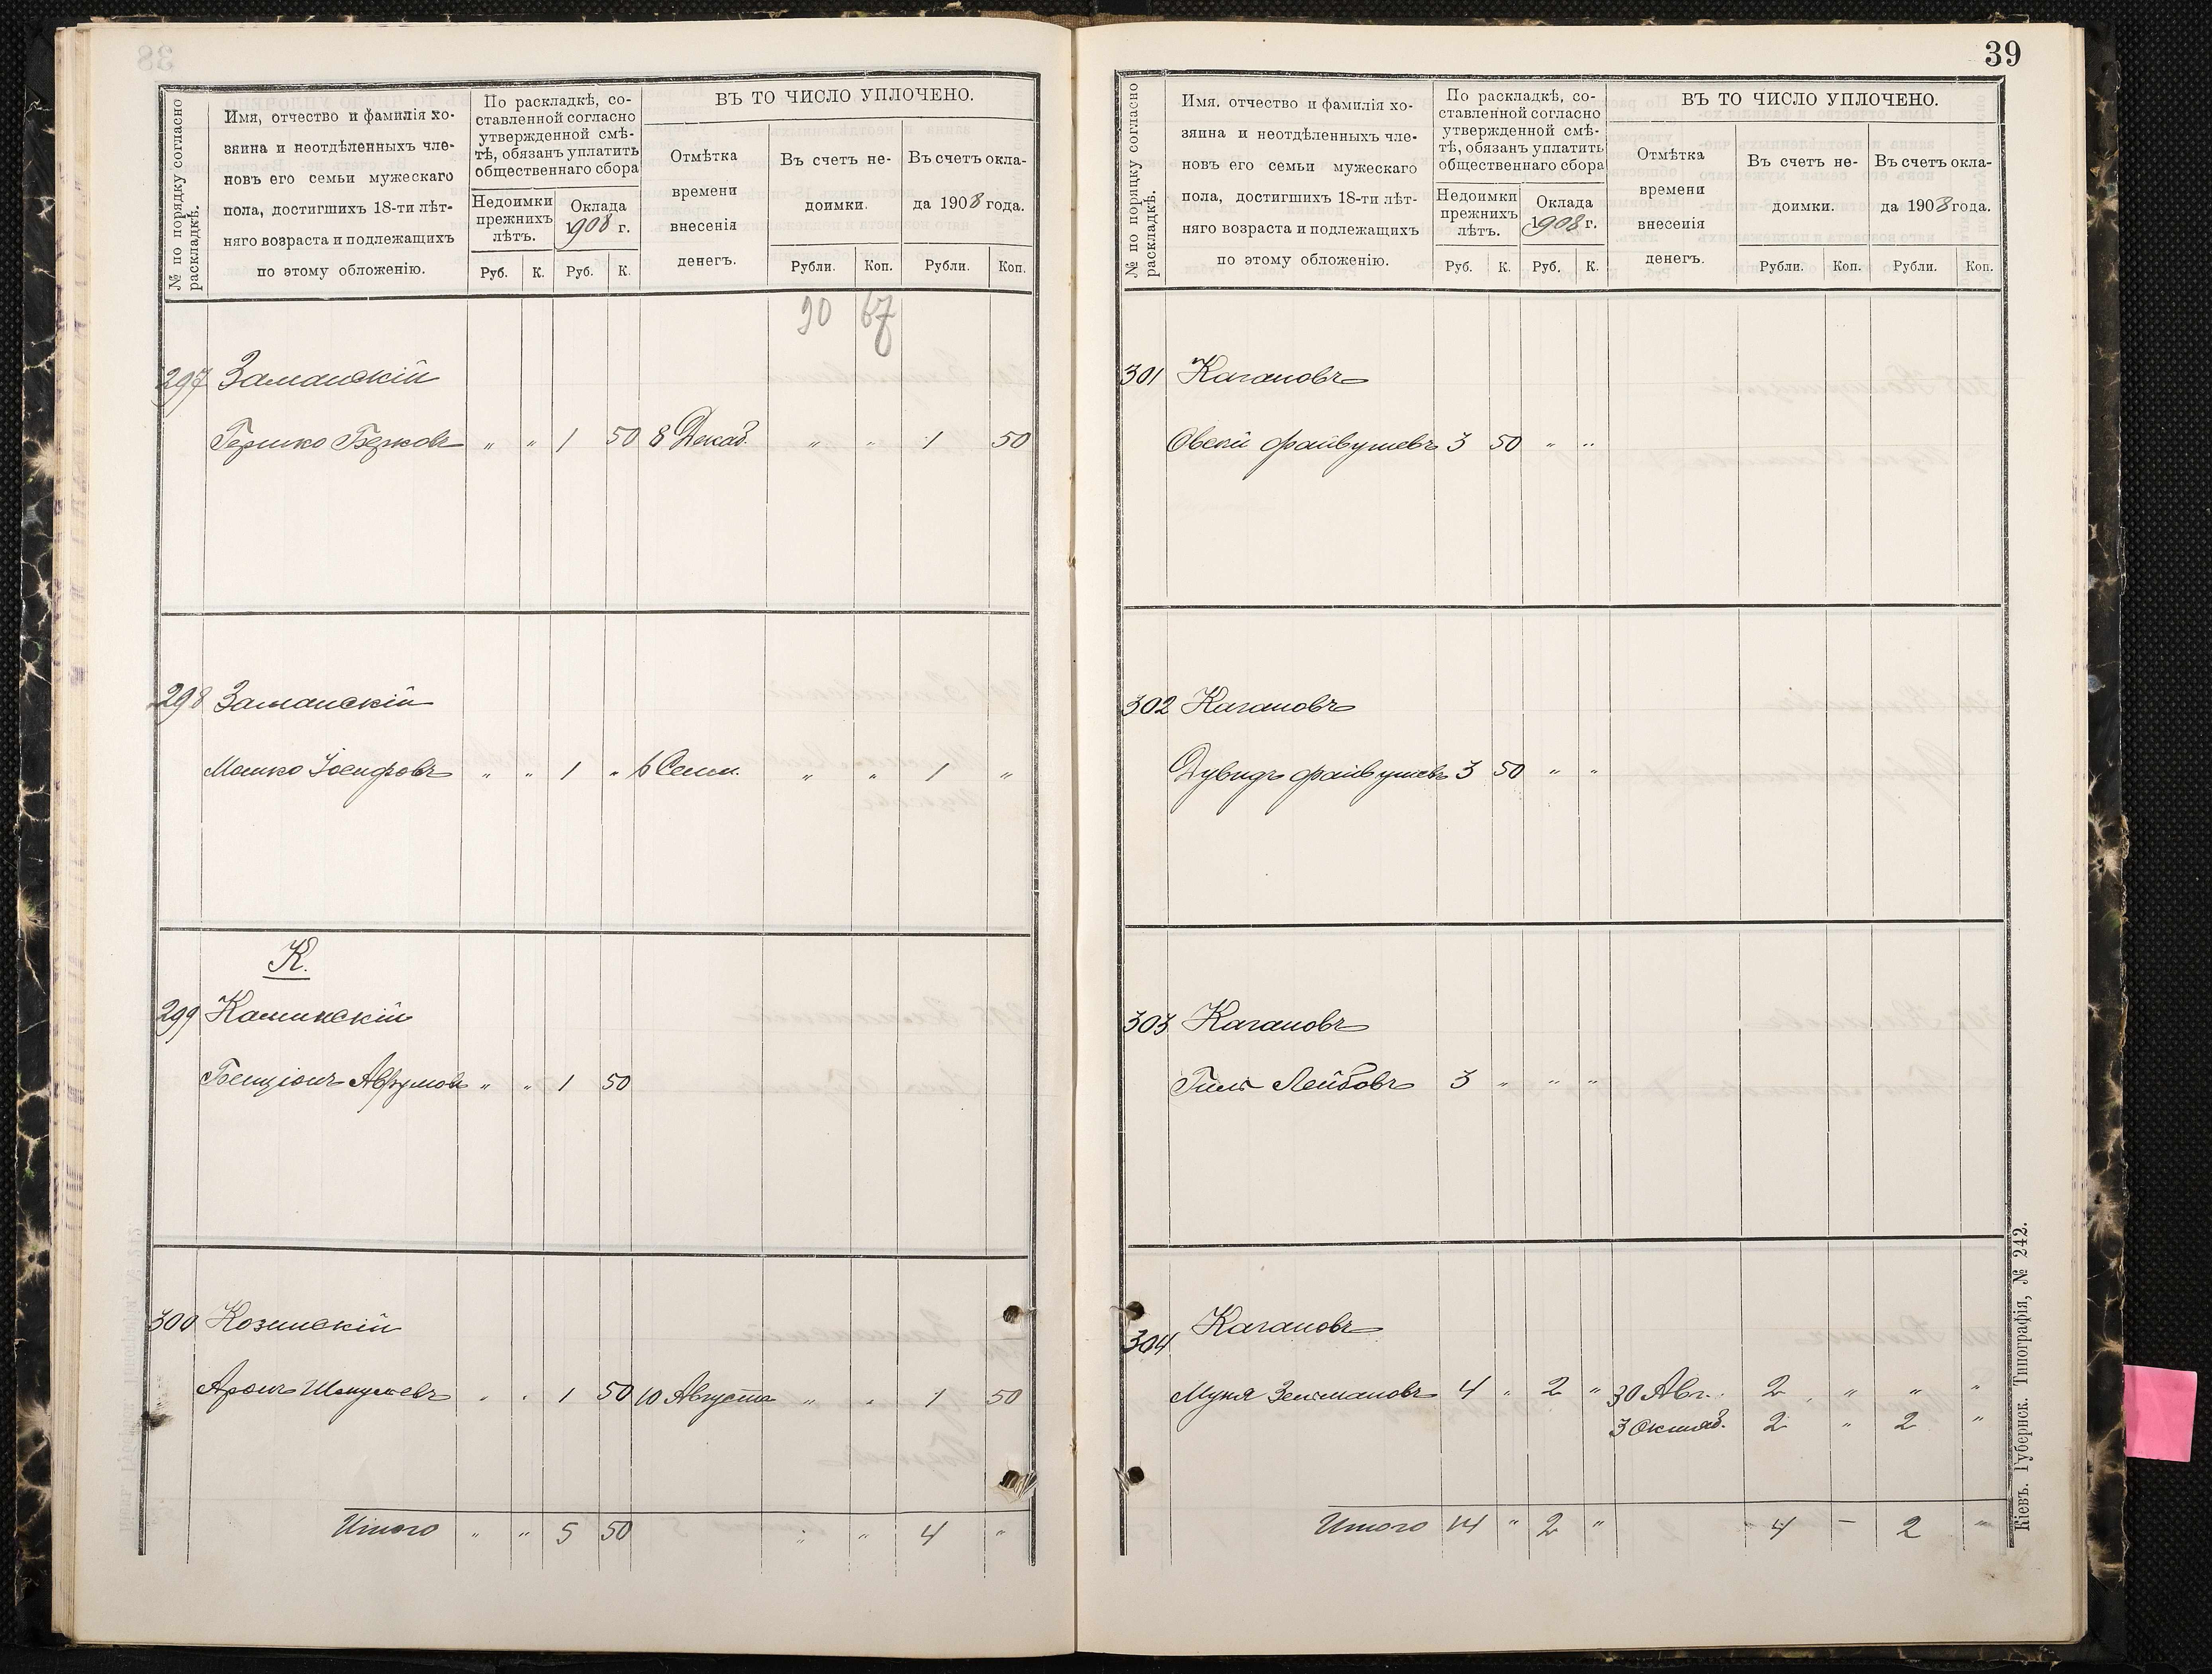 № по порядку согласно раскладкѣ.
Имя, отчество и фамилія хо-
зяина и неотдѣленныхъ чле-
новъ его семьи мужескаго
пола, достигшихъ 18-ти лѣт-
няго возраста и подлежащихъ
по этому обложенію.
По раскладкѣ, со-
ставленной согласно
утвержденной смѣ-
тѣ, обязанъ уплатить
общественнаго сбора
Недоимки прежнихъ лѣтъ.
Оклада 1908 г.
Руб. К. Руб. К.
ВЪ ТО ЧИСЛО УПЛОЧЕНО.
Отмѣтка
времени
внесенія
денегъ.
Въ счетъ не-
доимки.
Въ счетъ окла-
да 1908 года.
Рубли. Коп. Рубли. Коп.
67
297 Заманскій
Гершко Берковъ " " 1 50 8 Декаб. " " 1 50
298 Заманскій
Мошко Іосифовъ " " 1 " 6 Сент. " " 1 "
К.
299 Каминскій
Бенціонъ Аврумовъ " " 1 50
300 Козинскій
Аронъ " " 1 50 10 Августа " " 1 50
Итого " " 5 50 " " 4 "
39
№ по порядку согласно раскладкѣ.
Имя, отчество и фамилія хо-
зяина и неотдѣленныхъ чле-
новъ его семьи мужескаго
пола, достигшихъ 18-ти лѣт-
няго возраста и подлежащихъ
по этому обложенію.
По раскладкѣ, со-
ставленной согласно
утвержденной смѣ-
тѣ, обязанъ уплатить
общественнаго сбора
Недоимки прежнихъ лѣтъ.
Оклада 1908 г.
Руб. К. Руб. К.
ВЪ ТО ЧИСЛО УПЛОЧЕНО.
Отмѣтка
времени
внесенія
денегъ.
Въ счетъ не-
доимки.
Въ счетъ окла-
да 1908 года.
Рубли. Коп. Рубли. Коп.
301 Кагановъ
Овсей Файвушевъ 3 50 " "
302 Кагановъ
Дувидъ Файвушевъ 3 50 " "
303 Кагановъ
Лейбовъ 3 " " "
304 Кагановъ
Муня Зельмановъ 4 " 2 " 30 Авг. 2 " " "
3 Октяб. 2 " 2 "
Итого 14 " 2 " 4 — 2 "
Кіевъ. Губернск. Типографія, № 242.